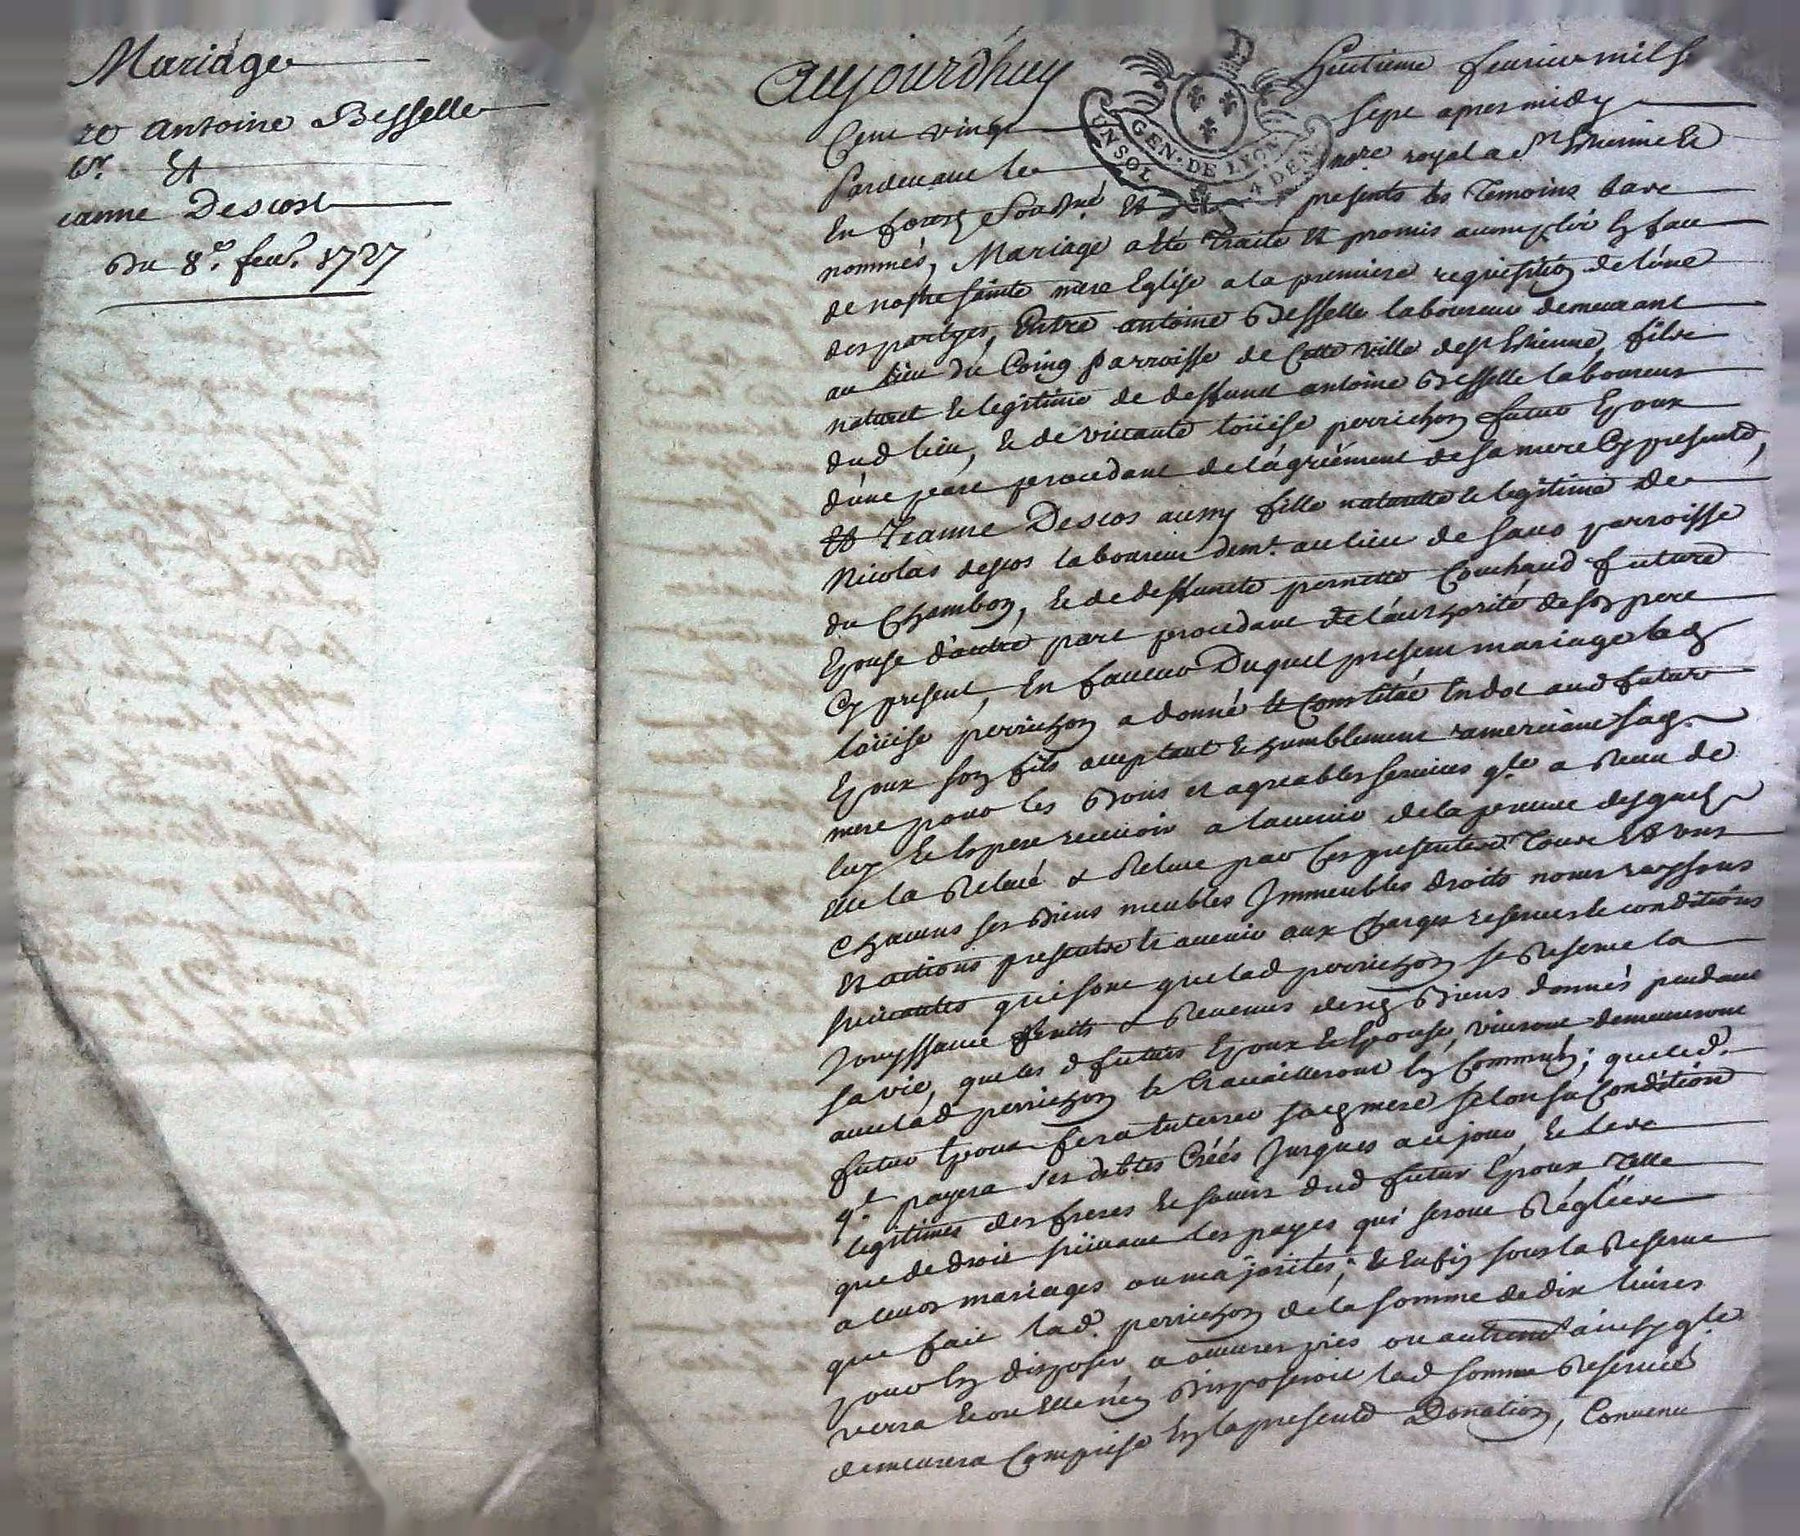 Mariage
re Antoine Besselle
Et
eanne Descost
Du 8e. feu. 1727
Aujourd'huy huitieme feurier mil s
Cent vingt sept apres midy
Pardeuant le nore royal a St Etienne le
En forest soussné. Et presents les temoins bas
nommés, Mariage a eté traité et promis accomplir en face
de nostre sainte mere Eglise a la premiere requisition de l'une
des partyes, Entre antoine Besselle laboureur demeurant
au lieu du Coing parroisse de Cette ville de st Etienne, fils
naturel et legitime de deffunt antoine Besselle laboureur
dud lieu, et de viuante loüise perrichon futur Epoux
d'une part procedant de l'agréement de sa mere Cy presente,
Et Jeanne Descos aussy fille naturelle et legitime de
Nicolas descos laboureur demt. au lieu de Saus parroisse
du Chambon, et de deffunte pernette Couchaud future
Epouse d'autre part procedant de l'authorité de son pere
Cy present, En faueur Duquel present mariage lad
loüise perrichon a donné et constitué En dot aud futur
Epoux son fils acceptant et humblement remerciant sad.
mere pour les Bons et agreables seruices qle a Receu de
luy et Espere receuoir a l'auenir de la preuue desquels
elle la Releué & Releue par Ces presentes Tous Et vns
Chacuns ses Biens meubles Immeubles droits noms raysons
Et actions presents et auenir aux Charges reserues et conditions
suiuantes qui sont que lad perrichon se Reserue la
Jouyssance fruits & Reuenus desd Biens donnés pendant
sa vie, que les d futurs Epoux et Epouse, viuront demeureront
auec lad perrichon et trauailleront En Commun; que led.
futur Epoux fera Enterrer sad mere selon sa Condition
ql payera ses debtes Créés Jusques au jour, et les
legitimes des freres et soeurs dud futur Epoux Telle
que de droit suiuant les payes qui seront Réglées
a leurs mariages ou majorités; et Enfin sous la Reserue
que fait lad. perrichon de la somme de dix liures
pour En disposer a oeuures pies ou autremt ainsy qle
verra et ou elle n'en Disposeroit lad somme Reseruée
demeurera Comprise En la presente Donation, Conuenu